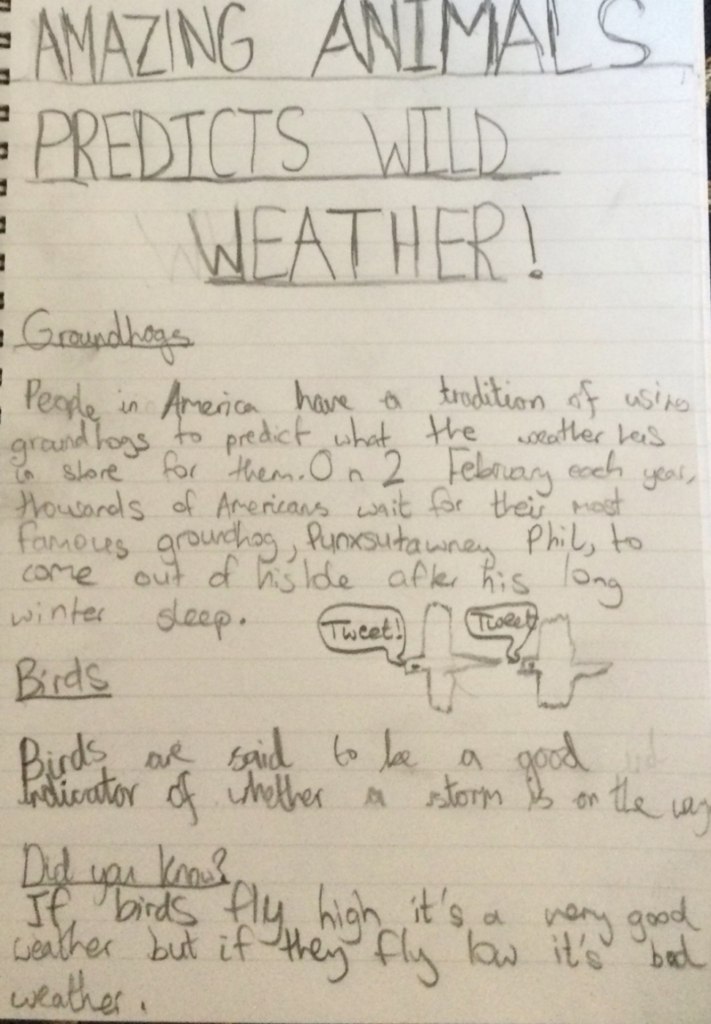 AMAZING ANIMALS
PREDICTS WILD
WEATHER!
Groundhogs
People in America have a tradition of using
groundhogs to predict what the weather has
in store for them. On 2 February each year,
thousands of Americans wait for their most
famous groundhog, Punxsutawney Phil, to
come out of his after his long
winter sleep.
Tweet! Tweet!
Birds
Birds are said to be a good
indicator of whether a storm is on the way
Did you know?
If birds fly high it's a very good
weather but if they fly low it's bad
weather.